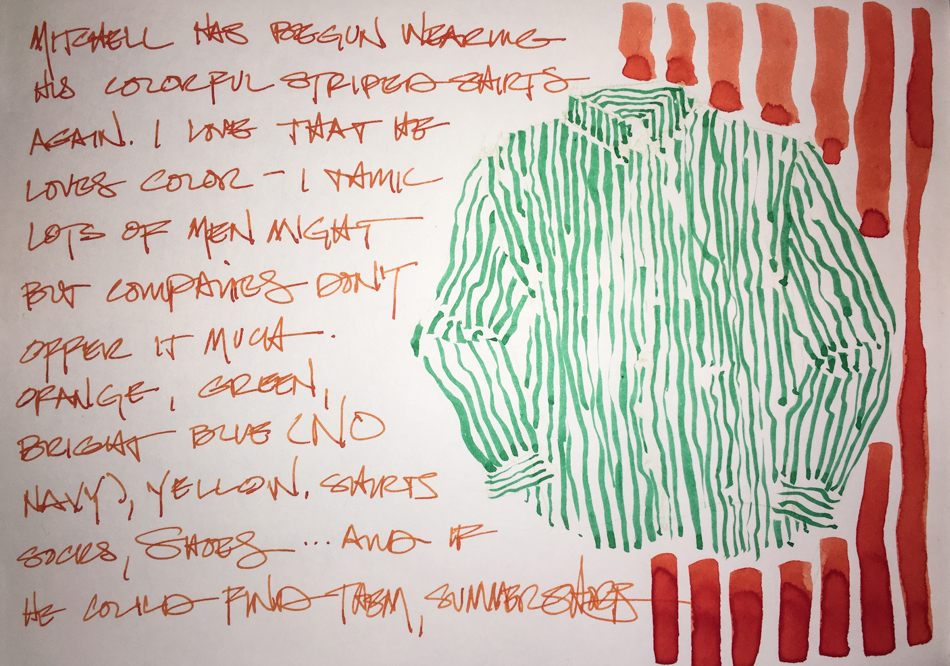 MITCHELL HAS BEGUN WEARING
HIS COLORFUL STRIPED SHIRTS
AGAIN. I LOVE THAT HE
LOVES COLOR - I THINK
LOTS OF MEN MIGHT
BUT COMPANIES DON'T
OFFER IT MUCH.
ORANGE, GREEN,
BRIGHT BLUE (NO
NAVY), YELLOW. SHIRTS
SOCKS, SHOES ... AND IF
HE COULD FIND THEM, SUMMER SHOES